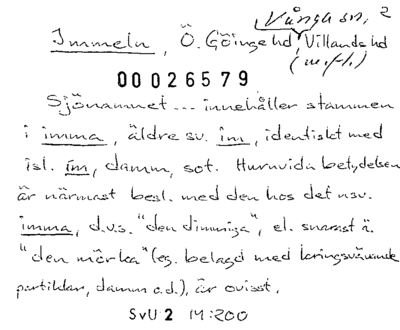 Vånga sn, 2
Immeln, Ö. Göinge hd, Villands hd
(m.fl.)
00026579
Sjönamnet --- innehåller stammen
i imma, äldre sv. im, identiskt med
isl. ím, damm, sot. Huruvida betydelsen
är närmast besl. med den hos det nsv.
imma, d.v.s. "den dimmiga", el. snarast ä.
"den mörka" (eg. belagd med kringsvävande
partiklar, damm o.d.), är ovisst.
SvU 2 14:200